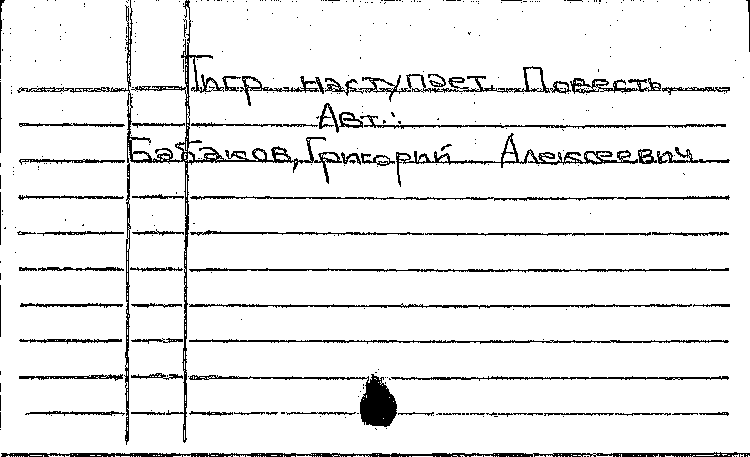 Тигр наступает. Повесть.
Авт.:
Бабаков, Григорий Алексеевич.